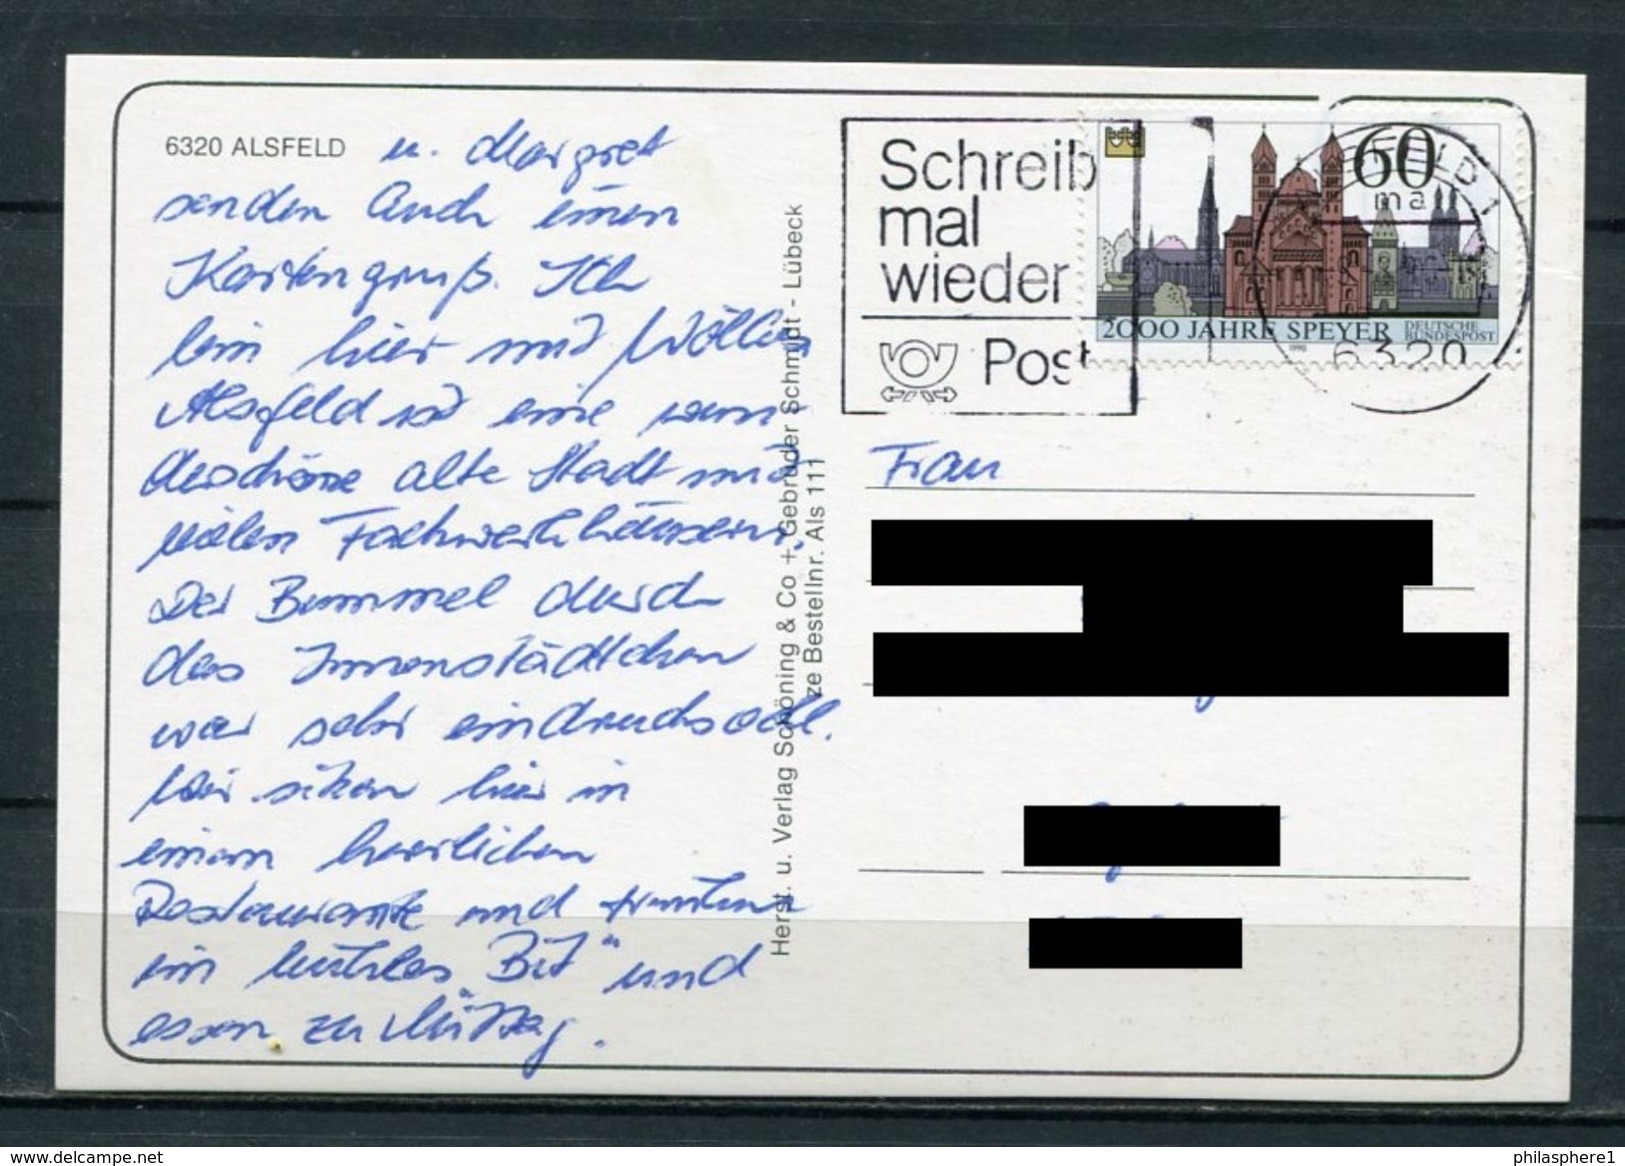 6320 ALSFELD u. Margret
senden Auch einen
Kartengruß. Ich
bin hier mit
Alsfeld ist eine wun-
derschöne alte Stadt mit
vielen Fachwerkhäusern.
Der Bummel durch
das Innenstädtchen
war sehr eindrucksvoll.
Wir sitzen hier in
einem herrlichen
Restaurante und trinken
ein kühles "Bit" und
essen zu Mittag.
Herst. u. Verlag Schöning & Co + Gebrüder Schmidt - Lübeck
ze Bestellnr. Als 111
Schreib
mal
wieder
Post
60
2000 JAHRE SPEYER DEUTSCHE BUNDESPOST
1990
6320
Frau
www.delcampe.net
philasphere1